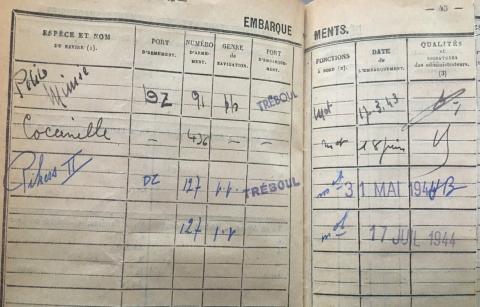 — 43 —
EMBARQUE MENTS.
ESPÈCE ET NOM DU NAVIRE (1).
PORT D'ARMEMENT.
NUMÉRO D'ARME-MENT.
GENRE DE NAVIGATION.
PORT D'EMBARQUE-MENT.
FONCTIONS A BORD (2).
DATE DE L'EMBARQUEMENT.
QUALITÉS et SIGNATURE des administrateurs. (3)
Mimie DZ 91 p.p. TRÉBOUL mot 17.3.43
Coccinelle — 436 — — mot 18 juin
II DZ 127 p.p. TRÉBOUL mot 31 MAI
127 p.p. mot 17 JUIL 1944